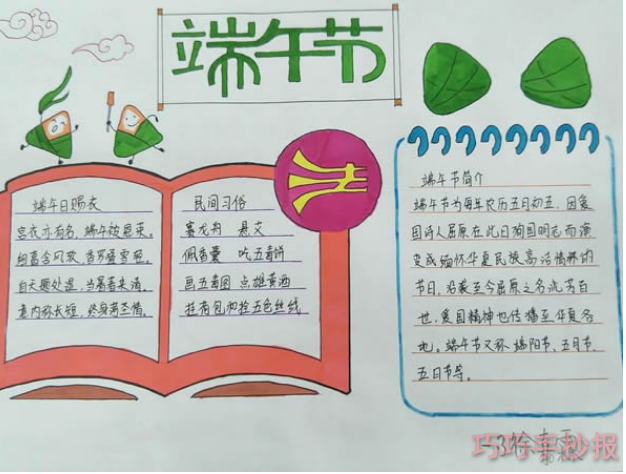 端午节
端午日赐衣
宫衣亦有名，端午被恩荣。
细葛含风软，香罗叠雪轻。
自天题处湿，当暑着来清。
意内称长短，终身荷圣情。
民间习俗
赛龙舟 悬艾
佩香囊 吃五毒饼
画五毒图 点雄黄酒
挂荷包和拴五色丝线
端午节简介
端午节为每年农历五月初五，因爱
国诗人屈原在此日殉国明志而演
变成缅怀华夏民族高洁情怀的
节日，沿袭至今屈原之名流芳百
世，爱国精神也传播至华夏各
地。端午节又称 端阳节、五月节、
五日节等。
巧巧手抄报